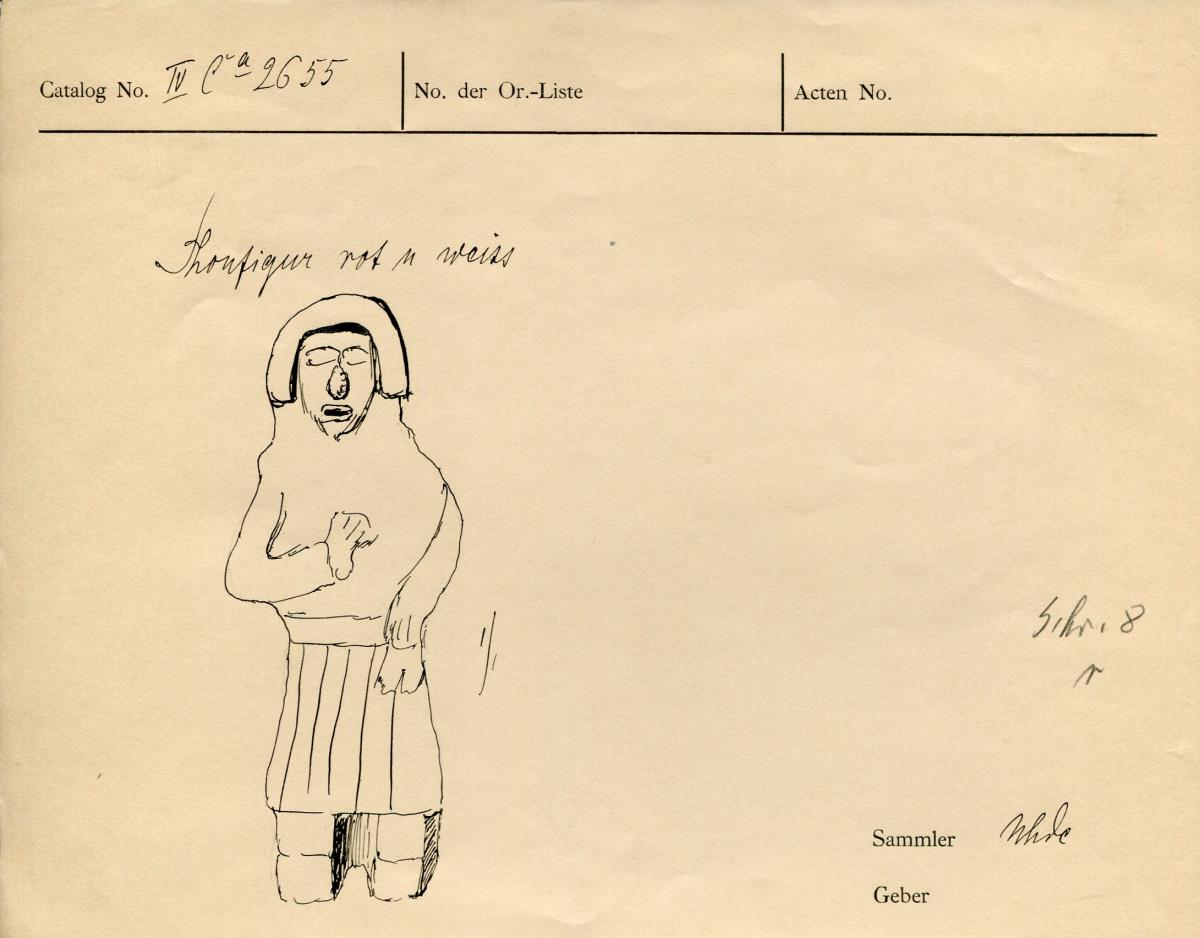 Catalog No. IV Ca 2655
No. der Or.-Liste
Acten No.
Thonfigur rot u weiss
1/1
Schr. 8
r
Sammler Uhde
Geber